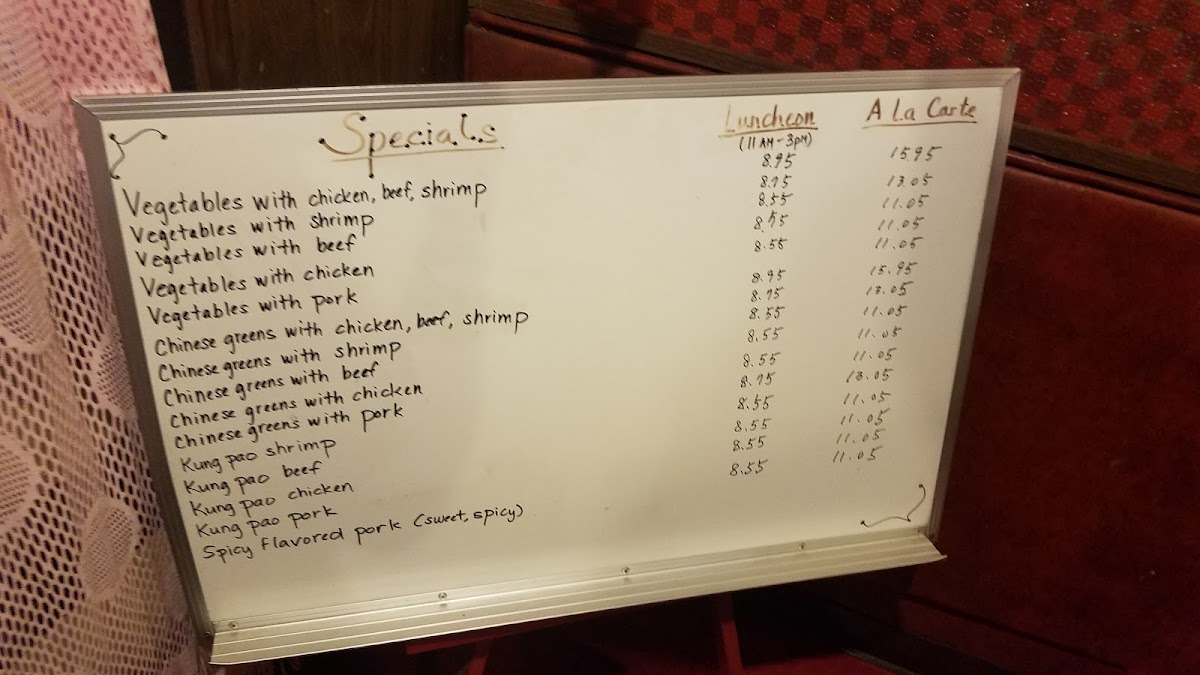 Specials Luncheon A La Carte
(11 AM - 3 PM)
Vegetables with chicken, beef, shrimp 8.95 15.95
Vegetables with shrimp 8.75 13.05
Vegetables with beef 8.55 11.05
Vegetables with chicken 8.55 11.05
Vegetables with pork 8.55 11.05
Chinese greens with chicken, beef, shrimp 8.95 15.95
Chinese greens with shrimp 8.75 13.05
Chinese greens with beef 8.55 11.05
Chinese greens with chicken 8.55 11.05
Chinese greens with pork 8.55 11.05
Kung pao shrimp 8.75 13.05
Kung pao beef 8.55 11.05
Kung pao chicken 8.55 11.05
Kung pao pork 8.55 11.05
Spicy flavored pork (sweet, spicy) 8.55 11.05